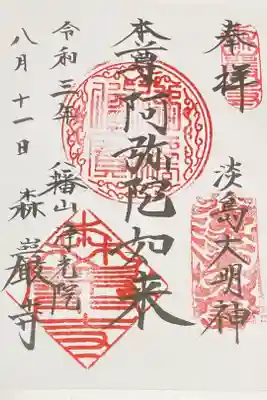 奉拝
淡島大明神
本尊阿弥陀如来
令和三年
八月十一日
八幡山浄光院
森巖寺